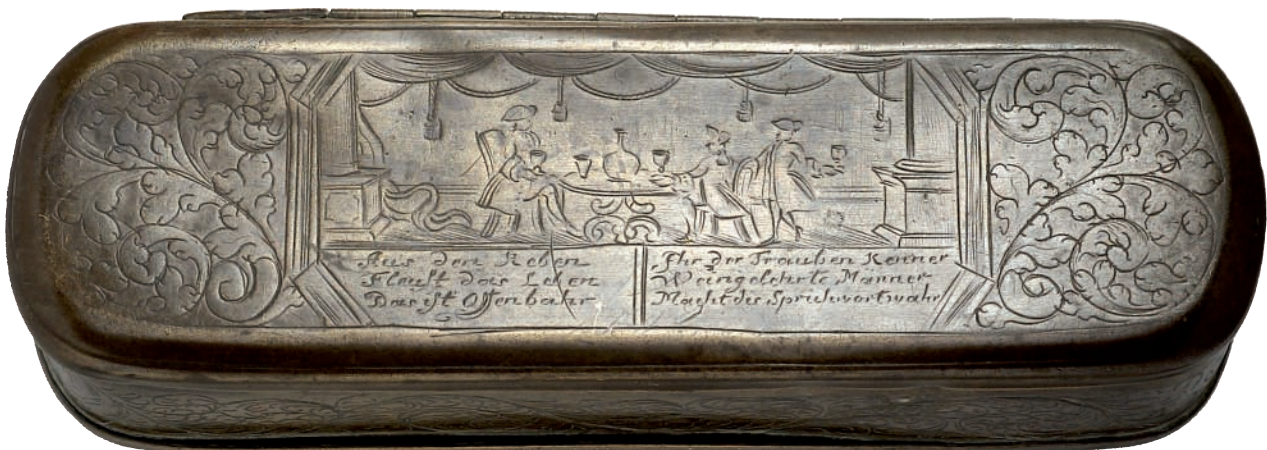 Aus den Reben
Fleust das Leben
Das ist Offenbahr
Ihr der Trauben Kenner
Weingelehrte Männer
Macht die Spruchwort wahr